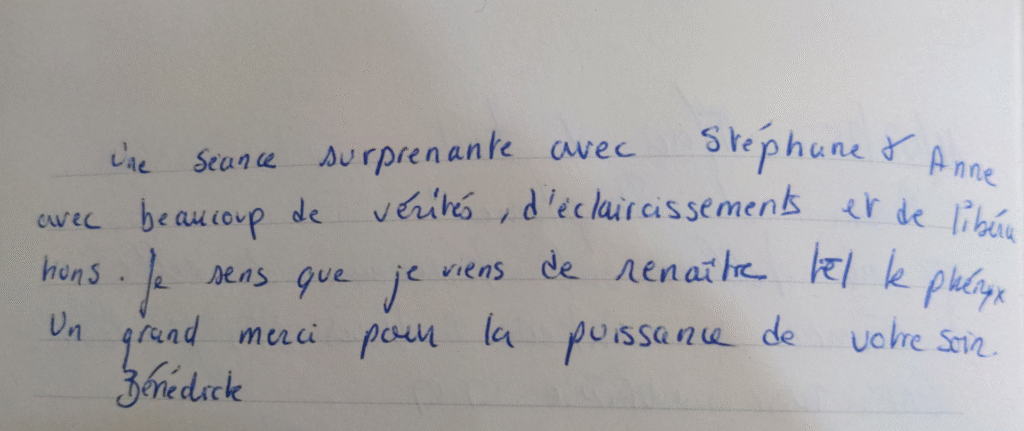 Une séance surprenante avec Stéphane & Anne
avec beaucoup de vérités, d'éclaircissements et de libéra
tions. Je sens que je viens de renaître tel le phényx
Un grand merci pour la puissance de votre soin.
Bénédicte